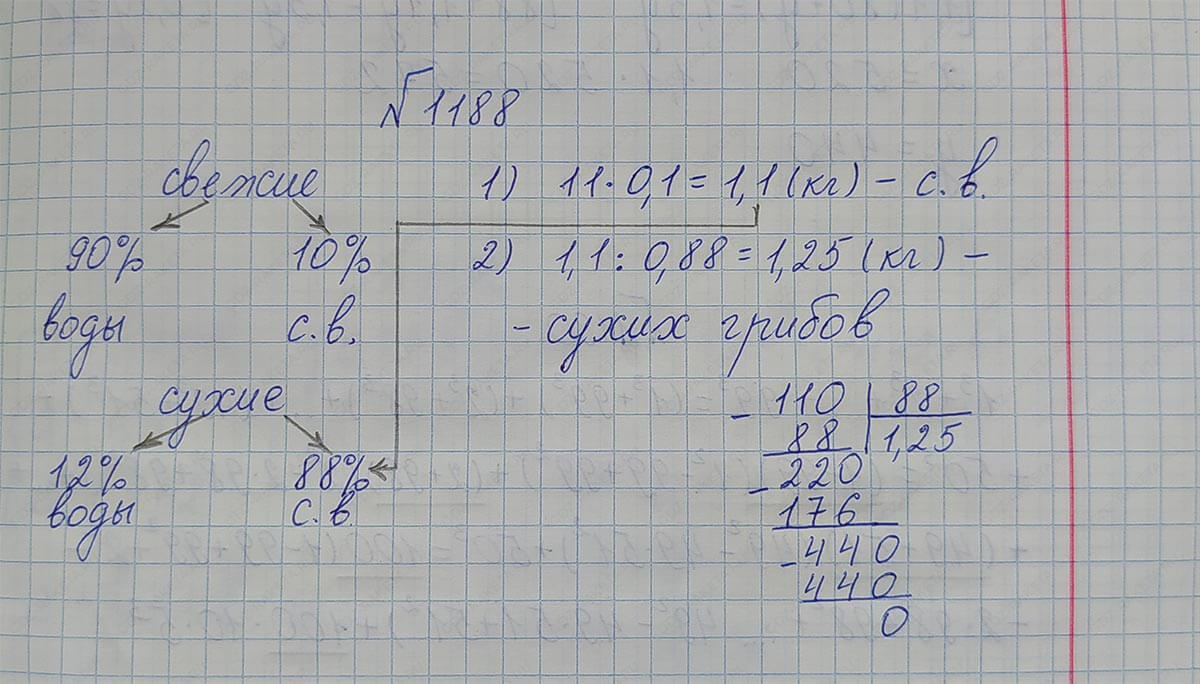 №1188
свежие
90% 10%
воды с.в.
сухие
12% 88%
воды с.в.
1) 11·0,1=1,1(кг) – с.в.
2) 1,1:0,88=1,25 (кг) –
– сухих грибов
-110 88
88 1,25
-220
176
-440
440
0